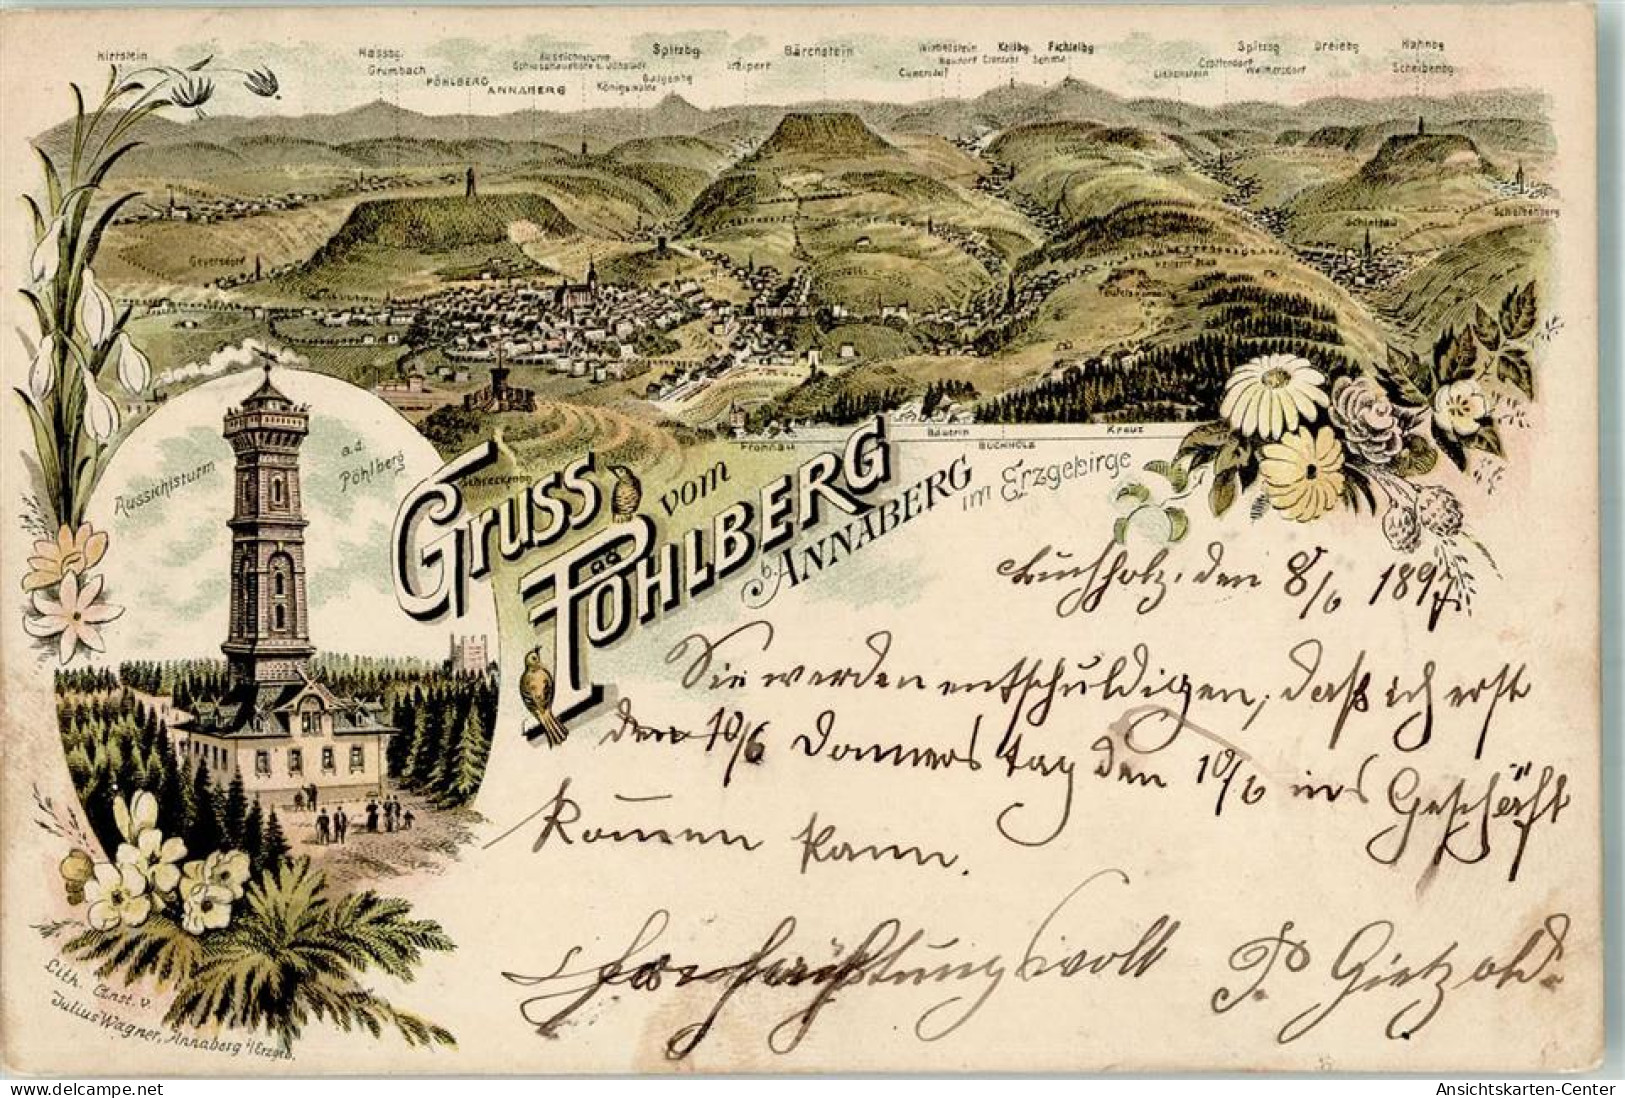 Hirtstein
Hassbg.
Grumbach
PÖHLBERG
ANNABERG
Königswalde
Spitzbg.
Galgenbg
Weipert
Bärenstein
Cunersdorf
Keilbg.
Fichtelbg
Sehma
Spitzbg
Crottendorf
Walthersdorf
Dreiebg
Hahnbg
Scheibenbg
Geyersdorf
Schlettau
Scheibenberg
Frohnau
BUCHHOLZ
Kreuz
Schreckenbg
Aussichtsturm
a.d.
Pöhlberg
Gruss
vom
PÖHLBERG
b. ANNABERG
im Erzgebirge
Buchholz, den 8/6 1897
Sie werden entschuldigen, daß ich erst
den 10/6 Donnerstag den 10/6 ins Geschäft
kommen kann.
Hochachtungsvoll P. Gietzold.
Lith. Anst. v.
Julius Wagner, Annaberg i/Erzgeb.
Ansichtskarten-Center